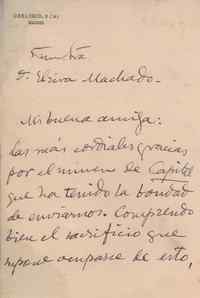 MADRID
Sra.
D. Elvira Machado.
Mi buena amiga:
Las más cordiales gracias
por el número de Capitol
que ha tenido la bondad
de enviarnos. Comprendo
bien el sacrificio que
supone ocuparse de esto,